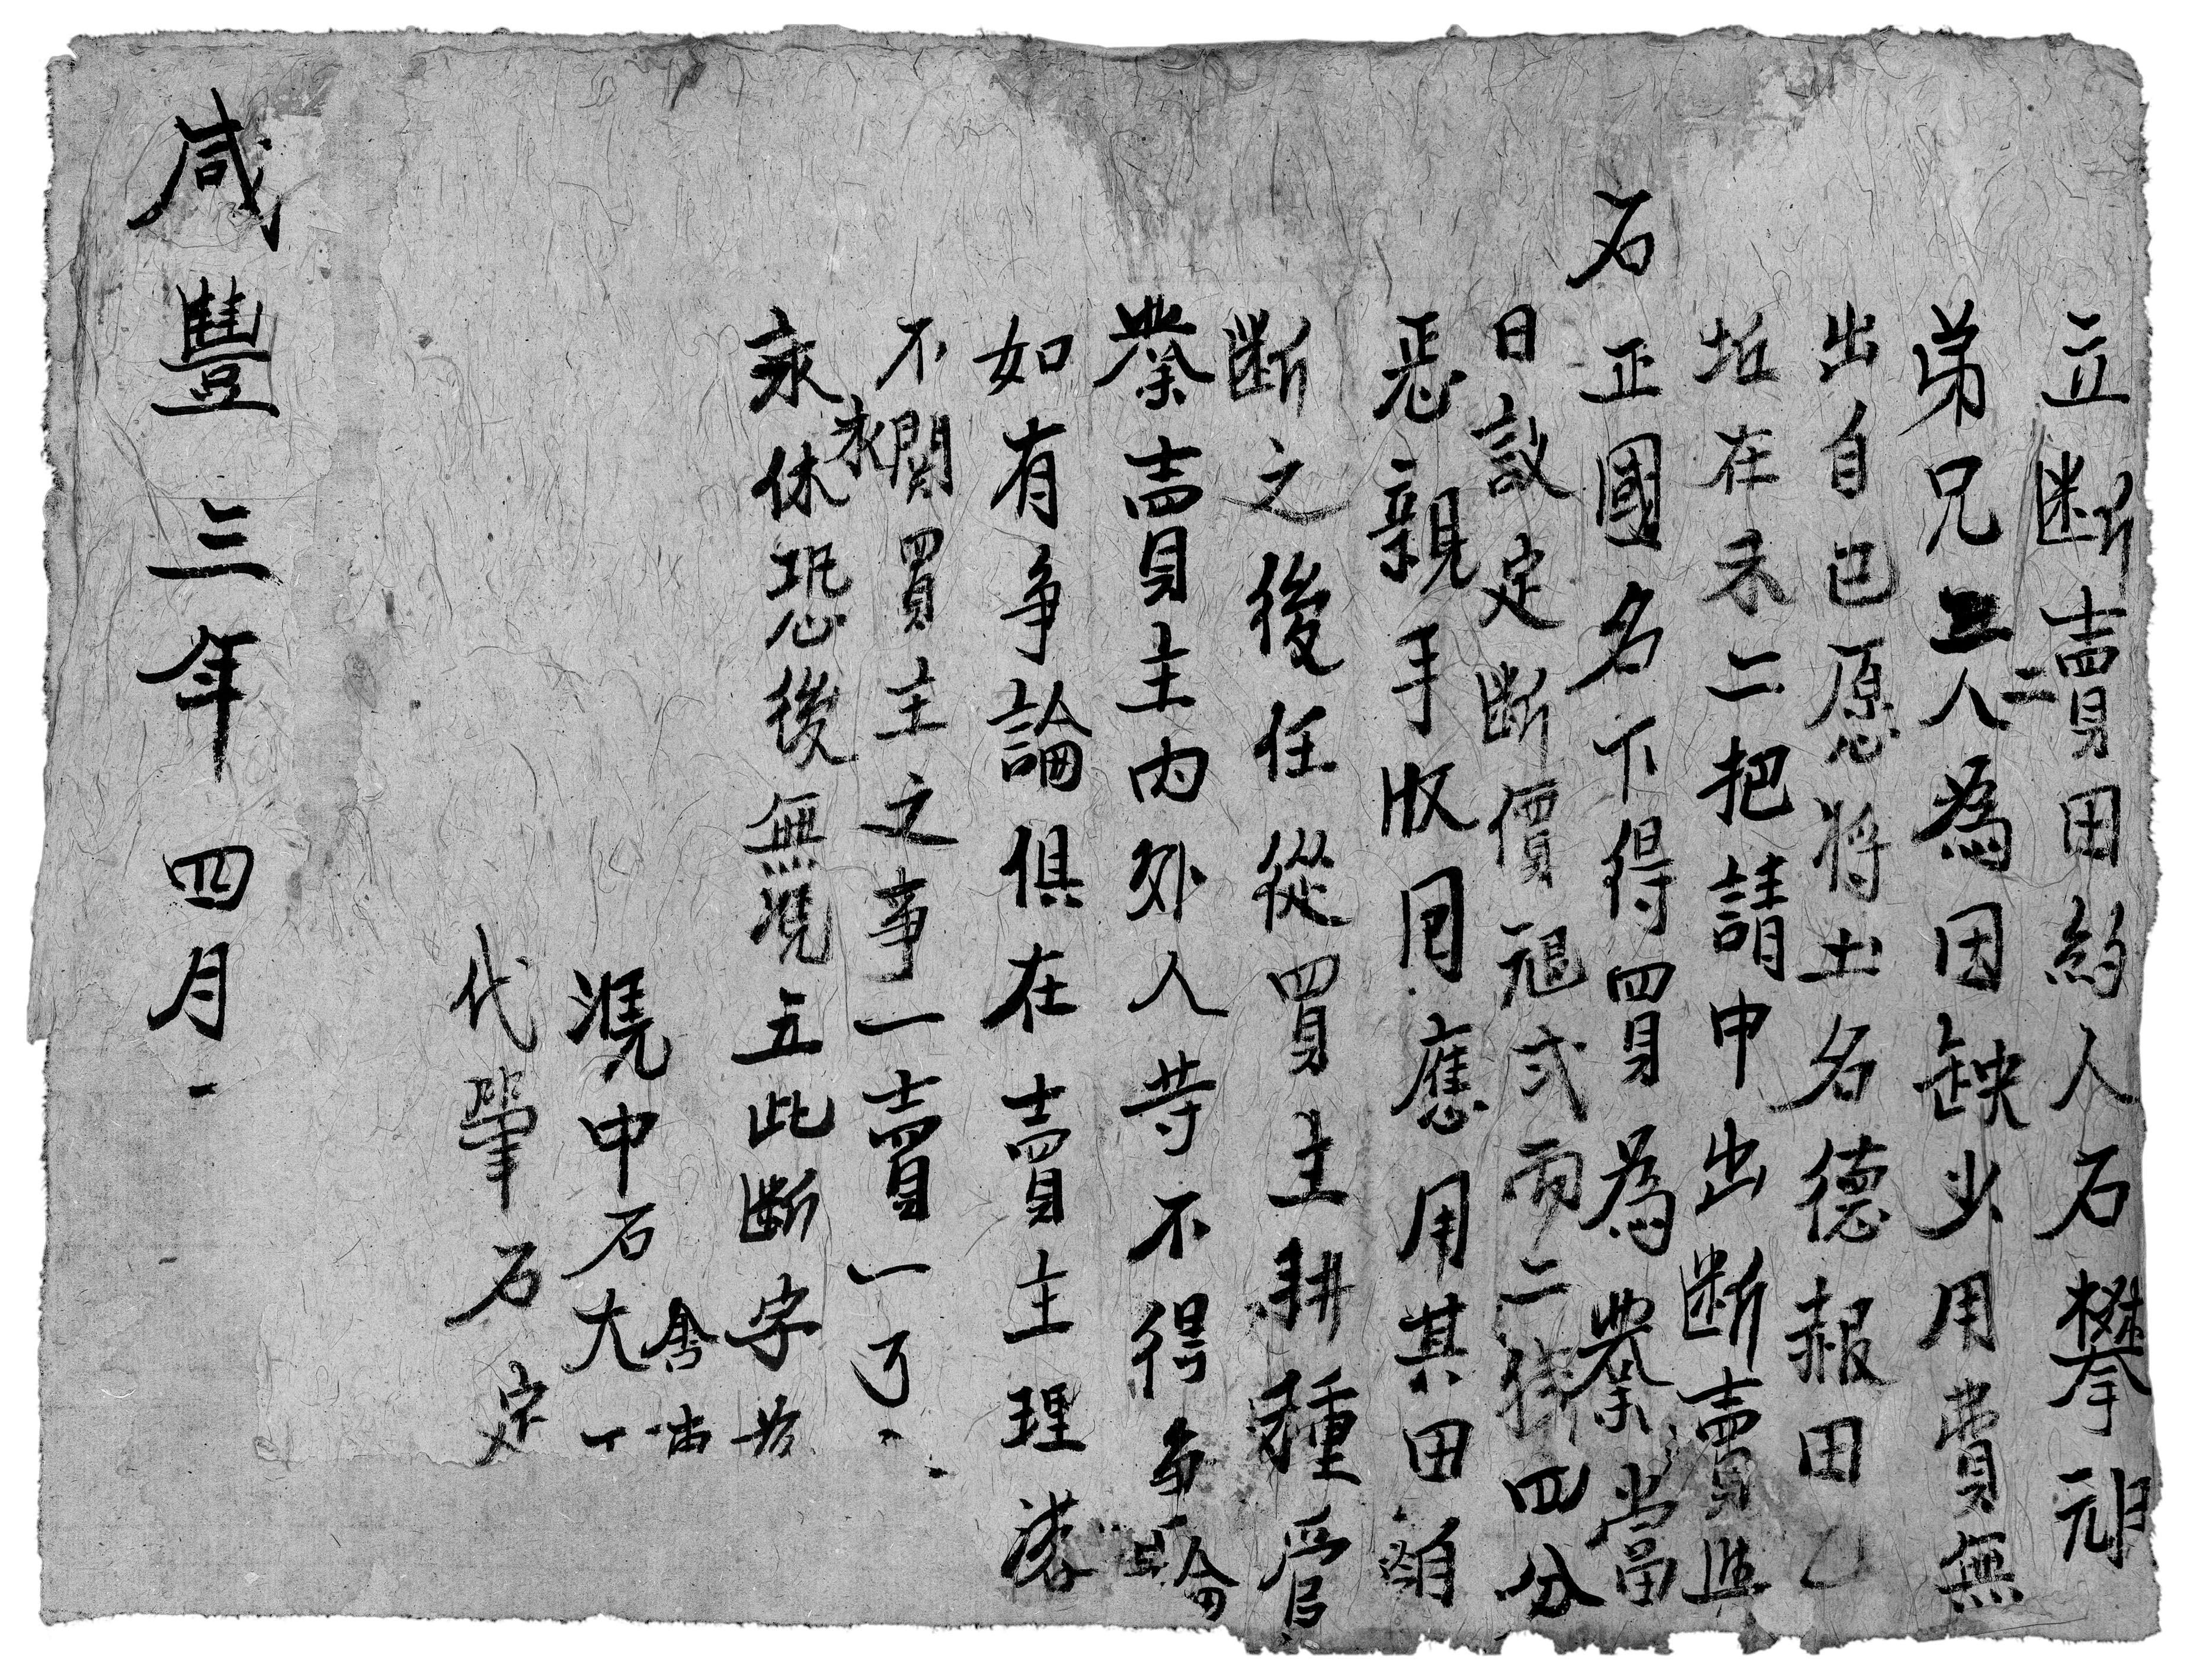 立断賣田約人石攀玥
弟兄二人為因缺少用費無
出自己愿将土名德报田乙
坵在禾二把請中出断賣與
石正國名下得買為業當
日議定断價艮弍両二錢四分
恩親手收囘應用其田自
断之後任從買主耕種管
業賣主内外人等不得争論
如有争論俱在賣主理落
不関買主之事一賣一了
永休恐後無憑立此断字
永
為
憑中石大
代筆石定
咸豐三年四月